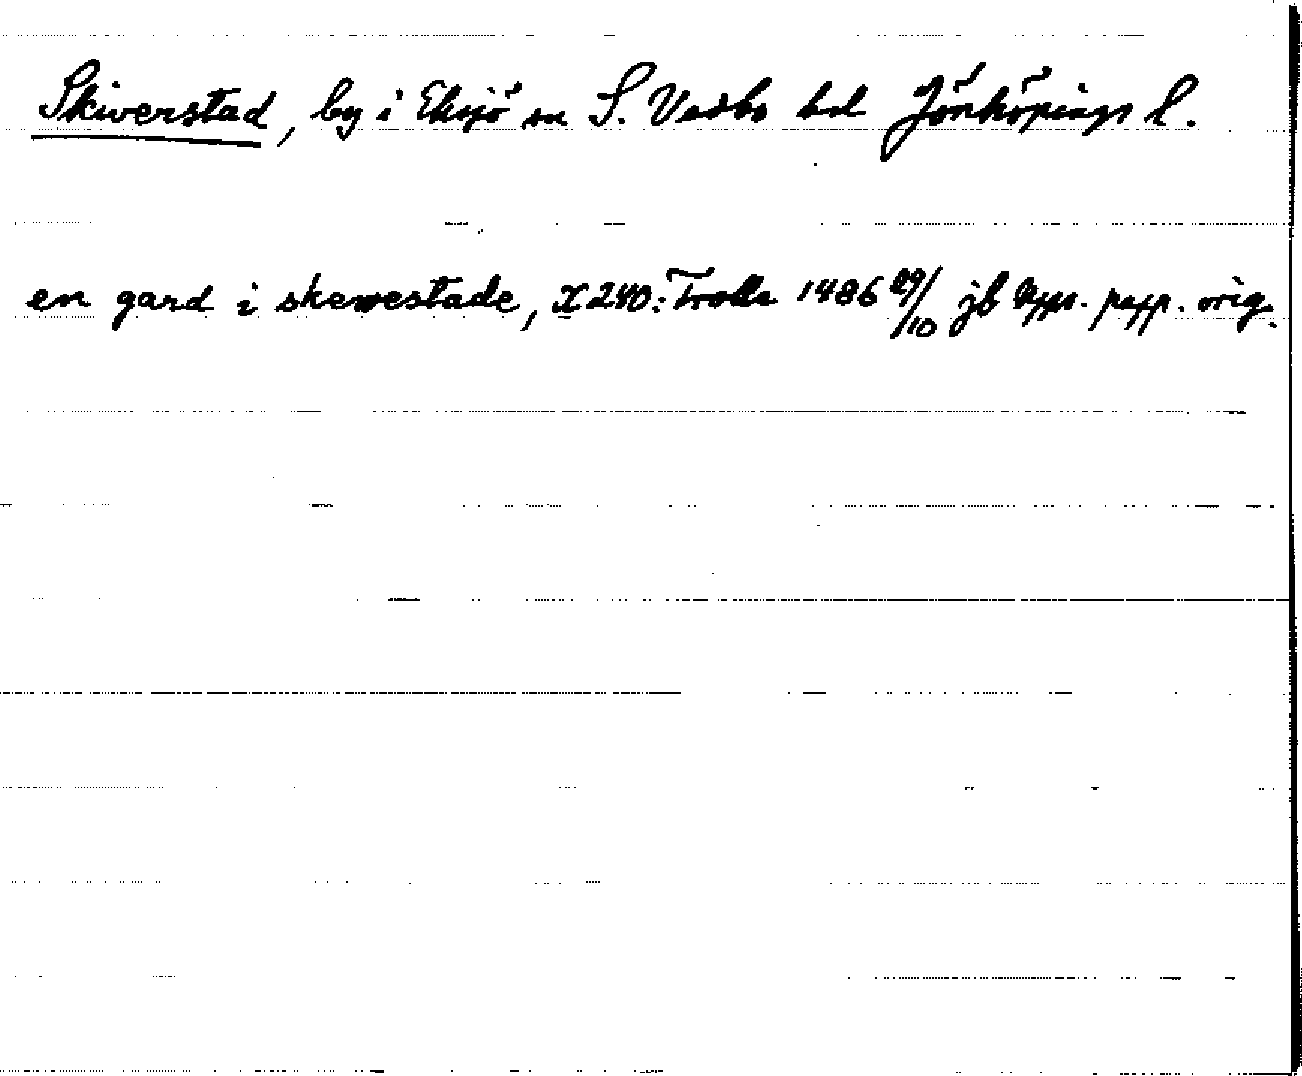 Skiverstad, by i Eksjö sn S. Vedbo hd Jönköpings l.
en gard i skewestade, X 240: Trolle 1486 29/10 jb Upps. papp. orig.